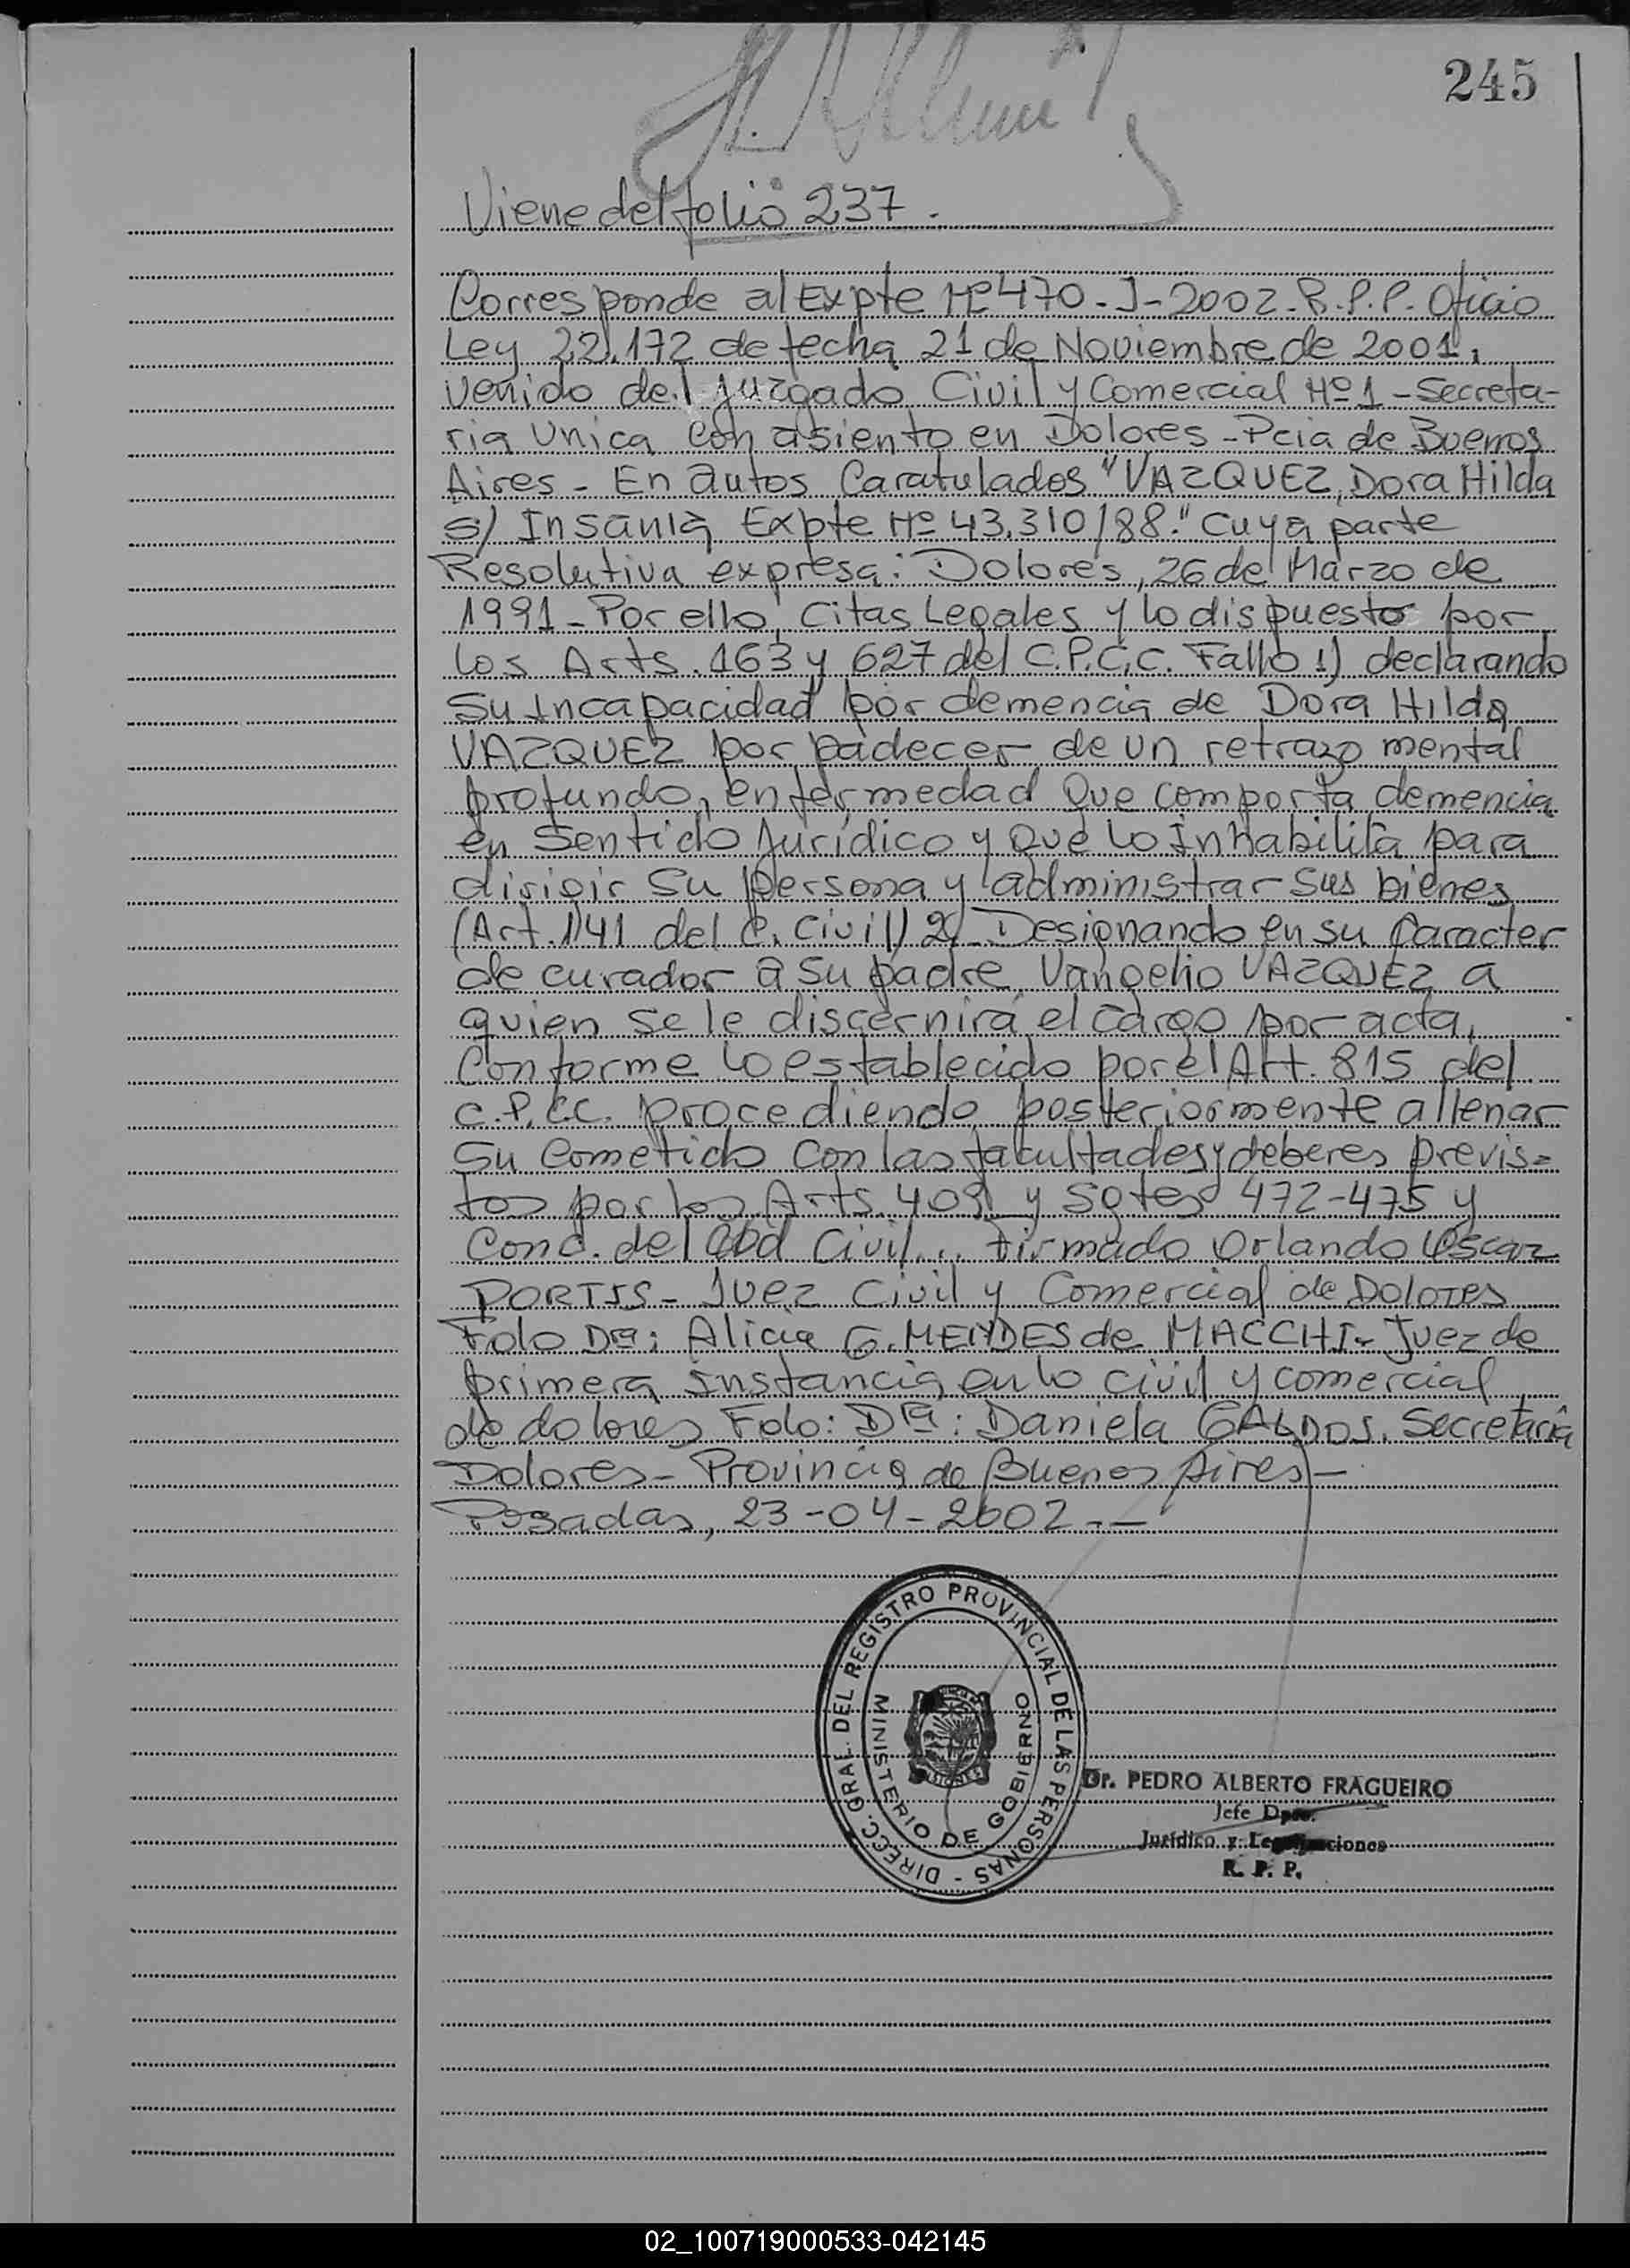 245
Viene del folio 237.
Corresponde al Expte Nº 470-J-2002-R.P.P. Oficio
Ley 22.172 de fecha 21 de Noviembre de 2001,
venido del Juzgado Civil y Comercial Nº 1-Secreta-
ria Unica con asiento en Dolores-Pcia de Buenos
Aires - En autos Caratulados "VAZQUEZ, Dora Hilda
s/ Insania Expte Nº 43.310/88." cuya parte
Resolutiva expresa: Dolores, 26 de Marzo de
1991-Por ello, Citas Legales y lo dispuesto por
los Arts. 163 y 627 del C.P.C.C. Fallo 1) declarando
su Incapacidad por demencia de Dora Hilda
VAZQUEZ por padecer de un retrazo mental
profundo, enfermedad que comporta demencia
en Sentido Jurídico y que lo Inhabilita para
dirigir su persona y administrar sus bienes
(Art. 141 del C. Civil) 2) Designando en su Caracter
de curador a su padre Vangelio VAZQUEZ a
quien se le discernirá el cargo por acta,
Conforme lo establecido por el Art. 815 del
C.P.C.C. procediendo posteriormente a llenar
su Cometido con las facultades y deberes previs=
tos por los Arts. 409 y sgtes 472-475 y
Conc. del Cod Civil... Firmado Orlando Oscar
PORTIS- Juez Civil y Comercial de Dolores
Fdo Dra: Alicia G. MENDES de MACCHI- Juez de
primera instancia en lo civil y comercial
de dolores Fdo: Dra: Daniela GALDOS. Secretaria
Dolores- Provincia de Buenos Aires-
Posadas, 23-04-2002.--
DIRECC. GRAL. DEL REGISTRO PROVINCIAL DE LAS PERSONAS -
MINISTERIO DE GOBIERNO
MISIONES
Dr. PEDRO ALBERTO FRAGUEIRO
Jefe Dpto.
Jurídico y
R. P. P.
02_100719000533-042145